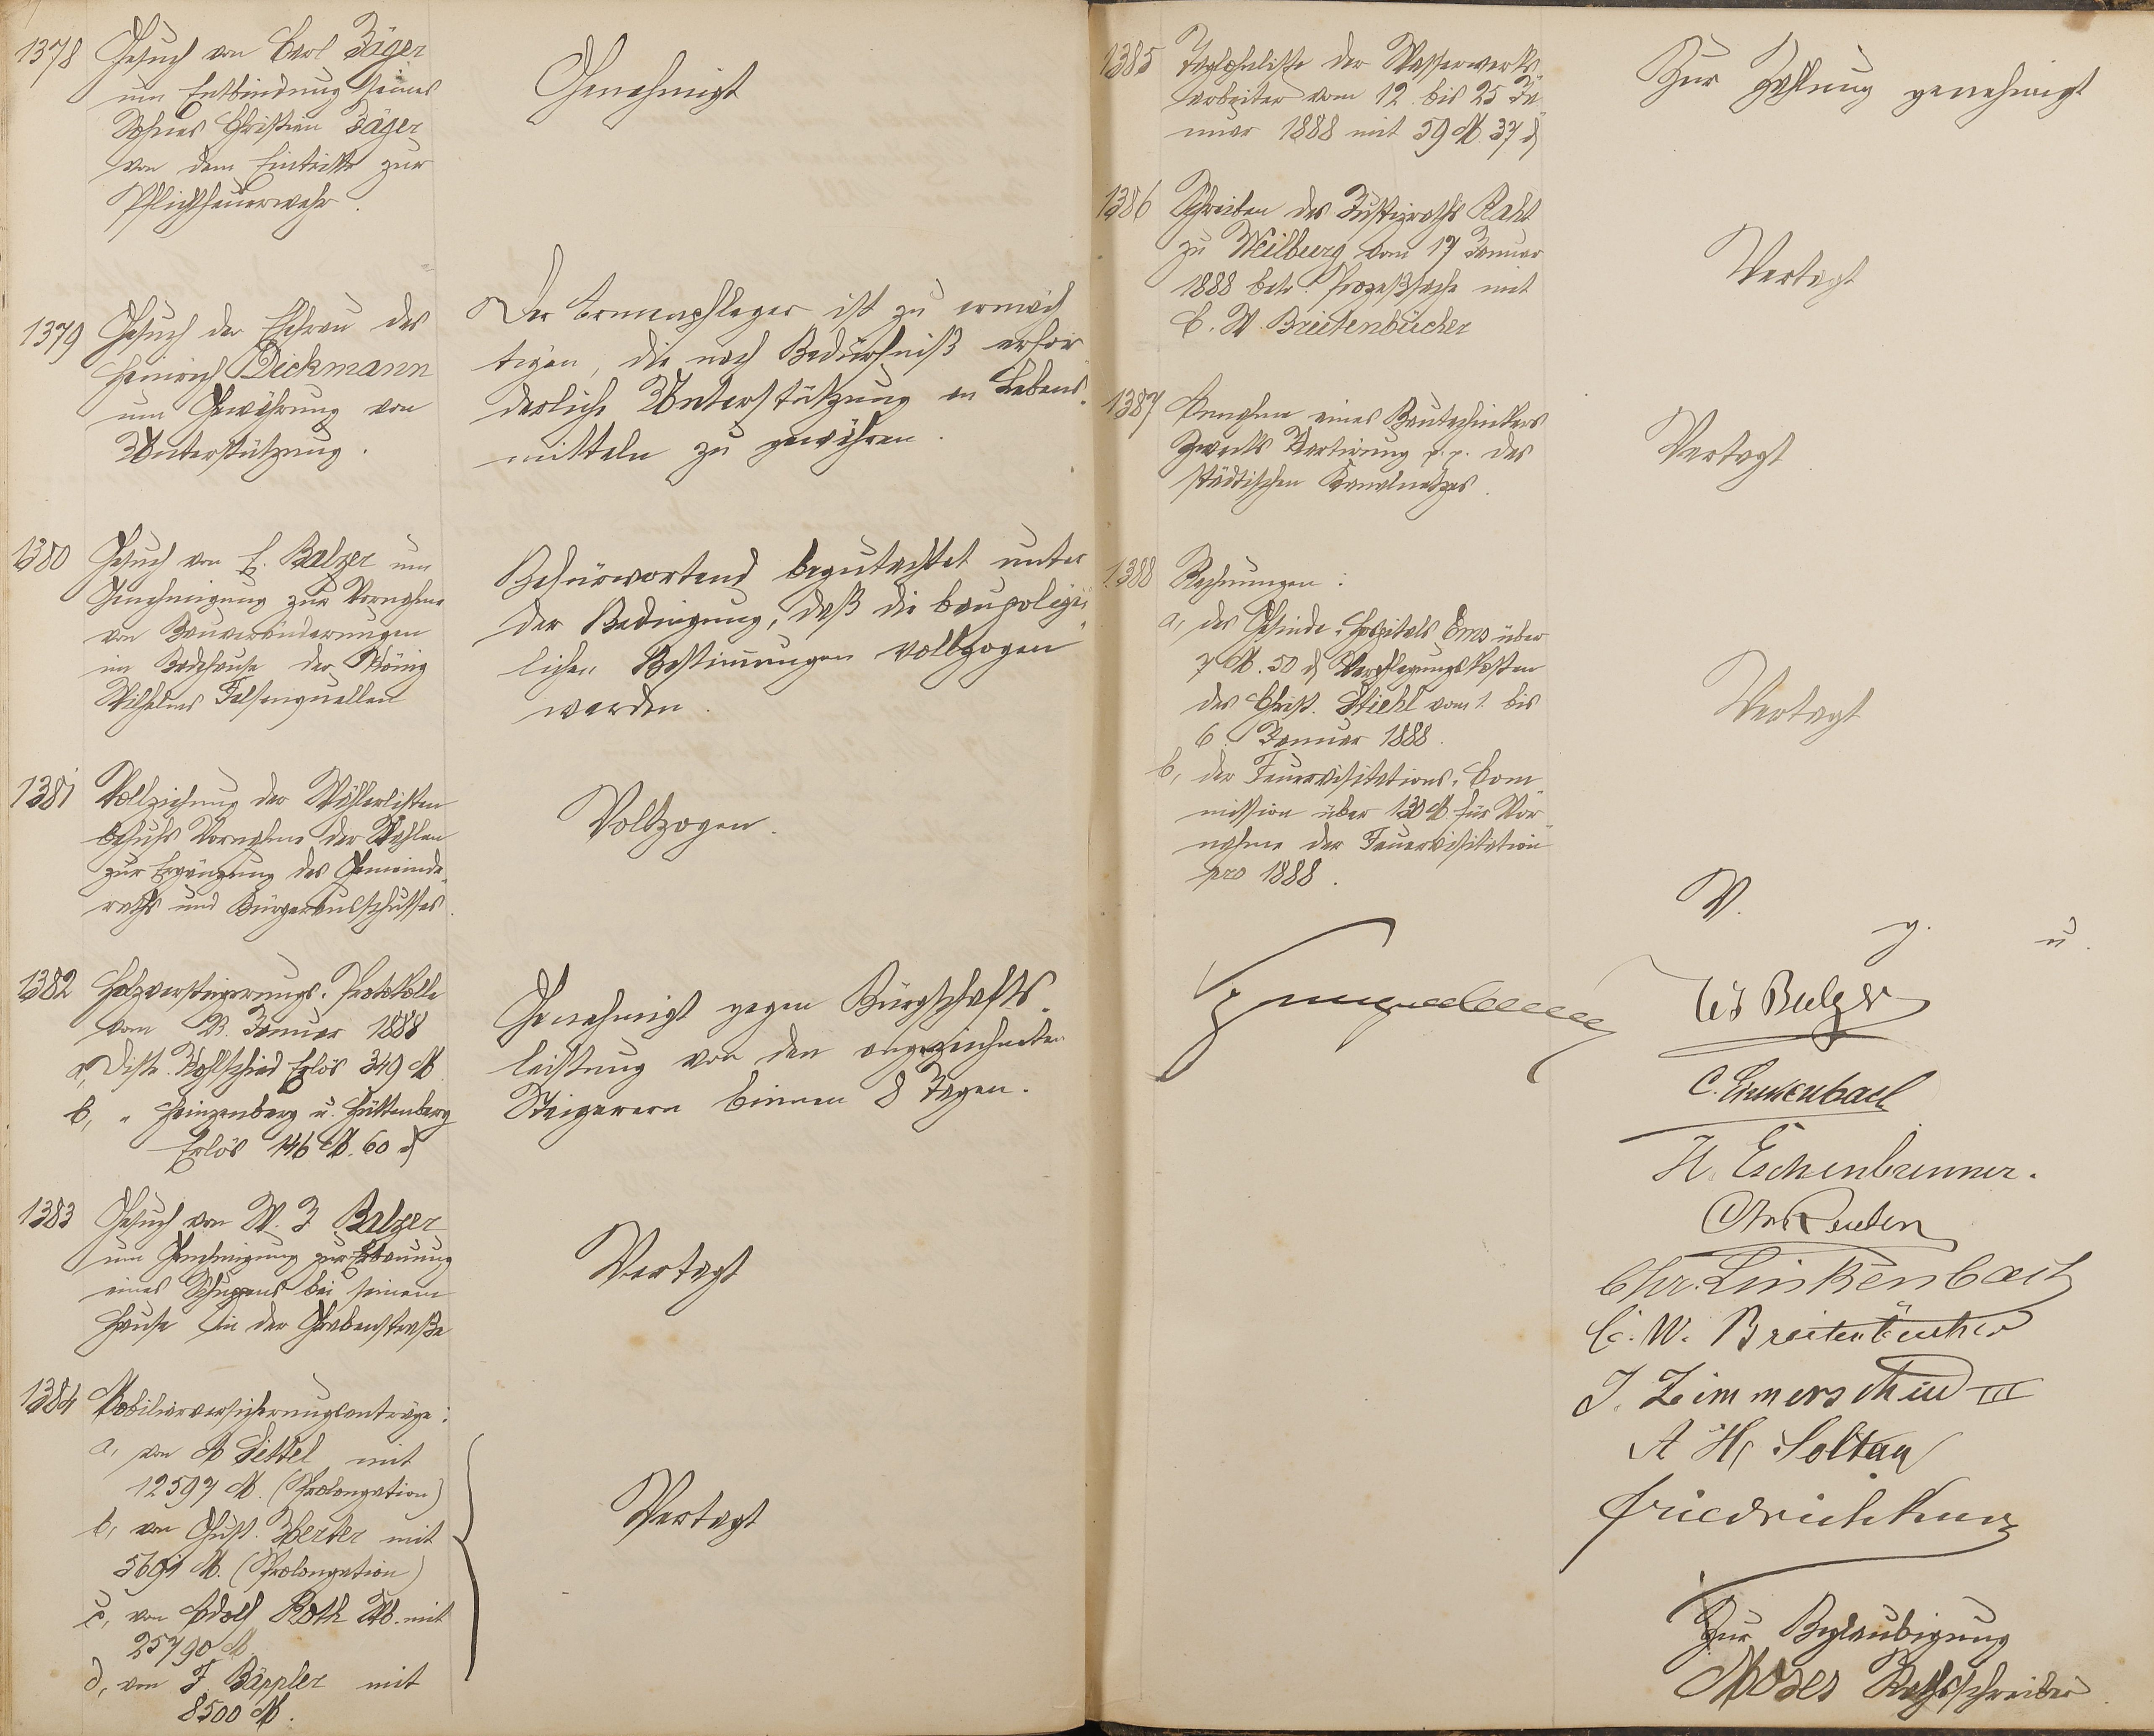 1378 Gesuch von Carl Jäger
um Entbindung seines
Sohnes Christian Jäger
von dem Eintritte zur
Pflichtfeuerwehr.
Genehmigt
1379 Gesuch der Ehefrau des
Heinrich Dickmann
um Gewährung von
Unterstützung.
Der Armenpfleger ist zu ermäch
tigen, die nach Bedürfniß erfor
derliche Unterstützung an Lebens-
mitteln zu gewähren.
1380 Gesuch von E. Balzer um
Genehmigung zur Vornahme
von Bauveränderungen
im Badehause der König
Wilhelms Felsenquellen
Befürwortend begutachtet unter
der Bedingung, daß die baupolizei
lichen Bestimmungen vollzogen
werden.
1381 Vollziehung der Wählerlisten
behufs Vornahme der Wahlen
zur Ergänzung des Gemeinde-
raths und Bürgerausschusses.
Vollzogen.
1382 Holzversteigerungs-Protokolle
vom 23. Januar 1888
a, Distr. Kohlschied Erlös 349 M
b, " Heinzenberg u. Hüttenberg
Erlös 146 M. 60 ₰
Genehmigt gegen Bürgschafts-
leistung von den angezeichneten
Steigerern binnen 8 Tagen.
1383 Gesuch von W. J. Balzer
um Genehmigung zur Erbauung
eines Schuppens bei seinem
Hause in der Grabenstraße
Vertagt
1384 Mobiliarversicherungsanträge:
a, von A Sittel mit
12597 M. (Prolongation)
b, von Gust. Herber mit
5691 M. (Prolongation)
c, von Adolf Roth Wb. mit
25790 M
d, von F. Bäppler mit
8500 M.
Vertagt
1385 Taglohnliste der Wasserwerks-
arbeiter vom 12. bis 25 Ja-
nuar 1888 mit 59 M. 37 ₰
Zur Zahlung genehmigt
1386 Schreiben des Justizraths Raht
zu Weilburg vom 17 Januar
1888 betr. Prozeßsache mit
C. W. Breitenbücher
Vertagt
1387 Annahme eines Bautechnikers
Zwecks Kartirung p. p. des
städtischen Kanalnetzes.
Vertagt
1388 Rechnungen:
a, des Gesinde-Hospitals Ems über
7 M. 50 ₰ Verpflegungskosten
des Christ. Stiehl vom 1. bis
6. Januar 1888.
b, der Feuervisitations-Com-
mission über 130 M. für Vor-
nahme der Feuervisitation
pro 1888.
Vertagt
V. g. u.
Balzer
C. Linkenbach
H. Eschenbrenner.
Chr. Reuter
Chr. Linkenbach
C. W. Breitenbücher
J. Zimmerschied III
A H, Soltau
Friedrich Kunz
Zur Beglaubigung
Moses Rathsschreiber